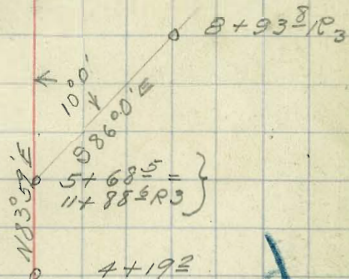 8+93⁸ R3
10°0'
S86°0'E
N83°59'E
5+68⁵ =
11+88⁶ R3
4+19²